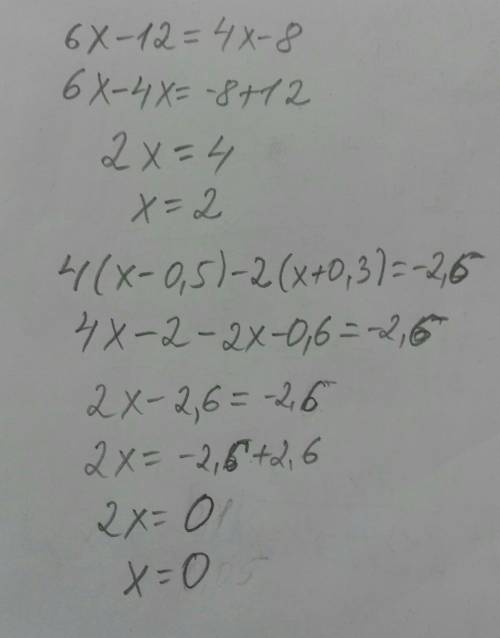 6x-12=4x-8
6x-4x=-8+12
2x=4
x=2
4(x-0,5)-2(x+0,3)=-2,6
4x-2-2x-0,6=-2,6
2x-2,6=-2,6
2x=-2,6+2,6
2x=0
x=0